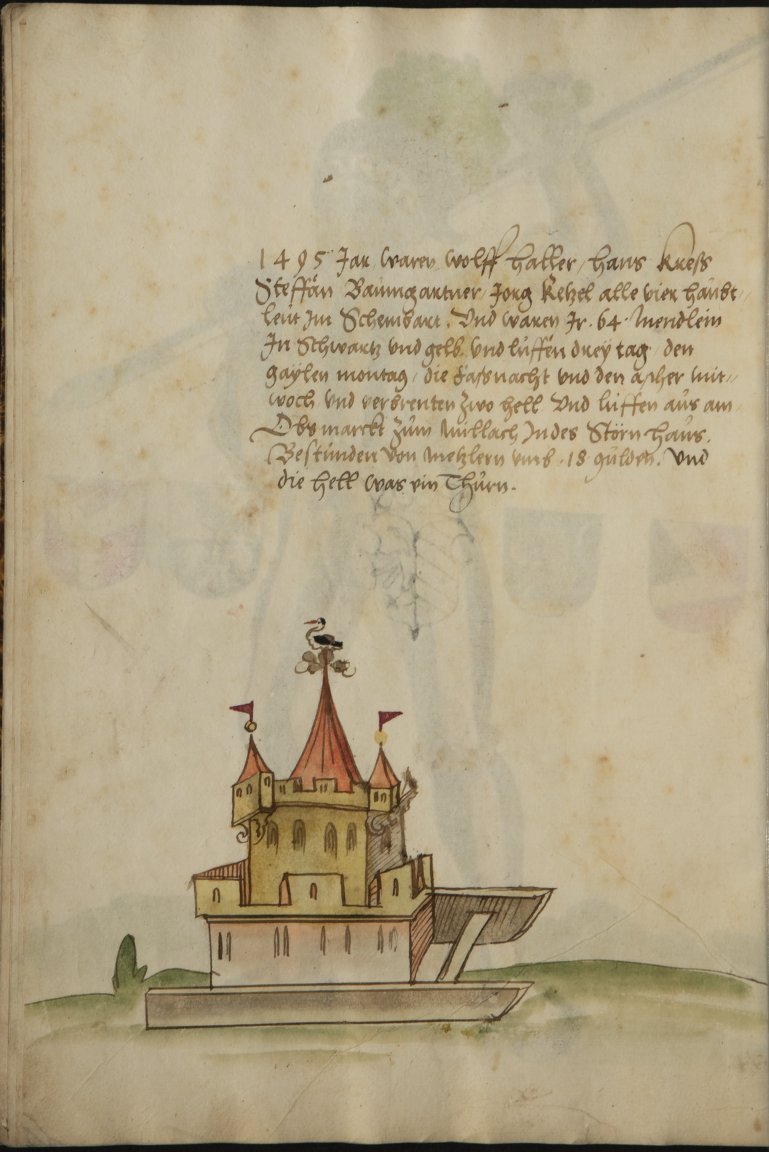 1495 Jar waren wolff haller / hans Kress
Steffan Baumgartner / Jorg Ketzel alle vier haubt-
leut Im Schembart. Und waren Ir. 64. Mendlein
In Schwartz und gelb und luffen drey tag den
gaylen montag / die fassnacht und den ascher mit-
woch und verbrenten zwo hell Und luffen aus am
Obs marckt zum Mullach In des Störn haus.
Bestunden von Metzlern umb .18 gulden. Und
die hell was ein Thurn.